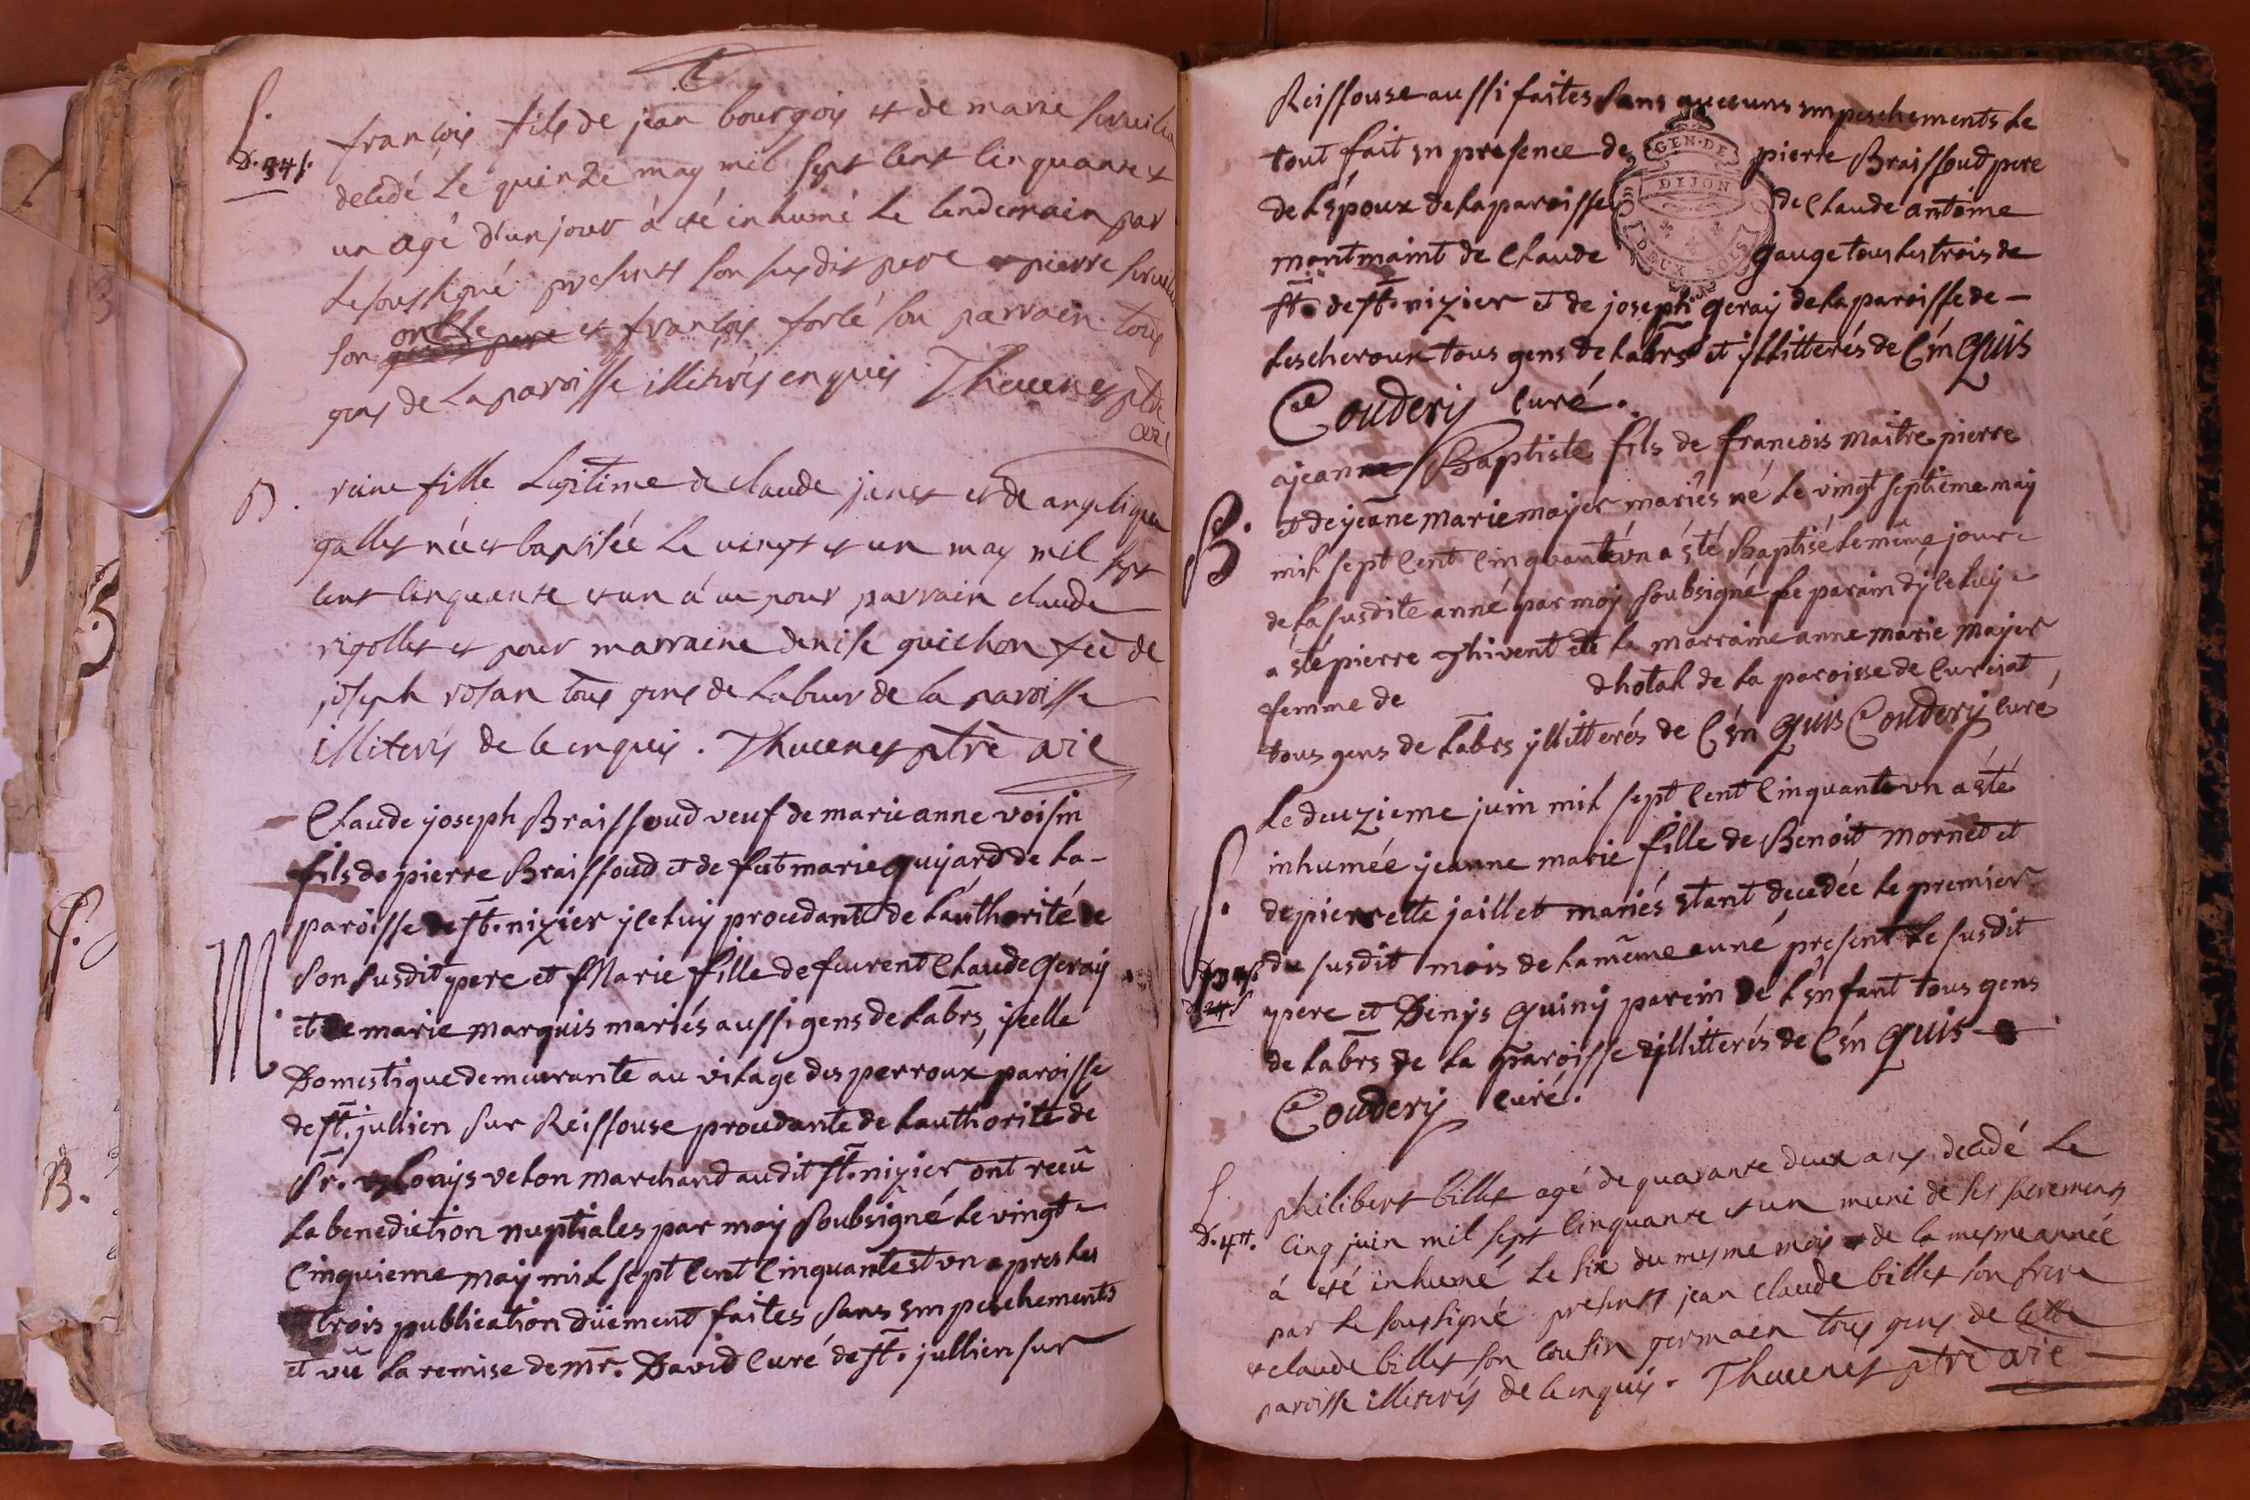 S.
D. 24 s.
françois fils de jean bourgois et de marie
decedé le quinze may mil sept cent cinquante et
un agé d'un jour à été inhumé le lendemain par
le soussigné presents son susdit pere et pierre
son oncle et françois forté son parrain tous
gens de la paroisse illiterés enquis Thevenet ptre
vic
B.
reine fille legitime de claude janet et de angelique
gallet née et baptisée le vingt et un may mil sept
cent cinquante et un à eu pour parrain claude
rigollet et pour marraine denise guichon fe de
joseph rosan tous gens de labeur de la paroisse
illiterés de ce enquis. Thevenet ptrè vic
M.
Claude joseph Braissoud veuf de marie anne voisin
fils de pierre Braissoud et de fut marie guijard de la-
paroisse de st. nizier yceluy procedant de lauthorité de
son susdit pere et Marie fille de feurent Claude Geray
et de marie marquis mariés aussi gens de labrs, ycelle
Domestique demeurante au vilage des perroux paroisse
de st. jullien sur Reissouse procedante de lauthorité de
Sr. Louys velon marchand audit st. nizier ont reçû
la benediction nuptiales par moy soubsigné le vingt
cinquieme may mil sept cent cinquante et vn apres les
trois publication düement faites sans empeschements
et vû la remise de mr. David curé de st. jullien sur
Reissouse aussi faites sans aucuns empeschements le
tout fait en presence de pierre Braissoud pere
de l'époux de la paroisse de Claude antoine
montmaint de Claude gauge tous les trois de
st. de st. nizier et de joseph geray de la paroisse de -
lescheroux tous gens de labrs et yllitterés de C én quis
Coudery curé.
B.
ajean Baptiste fils de francois maitre pierre
et de jeane marie mayer mariés né le vingt septieme may
mil sept cent cinquante vn a été Baptisé le même jour
de la susdite anné par moy soubsigné le parain dyceluy
a été pierre Thivent et la marraine anne marie mayer
femme de dhotal de la paroisse de Curciat
tous gens de labrs yllitterés de C én quis Coudery curé
S.
D. 24 s
Le deuzieme juin mil sept cent cinquante vn a été
inhumée jeanne marie fille de Benoit mornet et
de pierrette jaillet mariés etant decedée le premier
du susdit mois de la même anné present le susdit
pere et Denys Guiny parein de l'enfant tous gens
de labrs de la paroisse yllitterés de C én quis
Coudery curé.
S.
D. 4tt.
philibert billet agé de quarante deux ans decedé le
cinq juin mil sept cinquante et un muni de ses sacrements
à été inhumé le six du mesme mois et de la mesme année
par le soussigné presents jean claude billet son frere
et claude billet son cousin germain tous gens de cette
paroisse illiterés de ce enquis. Thevenet ptrè vic
GEN. DE
DIJON
DEUX SOLS